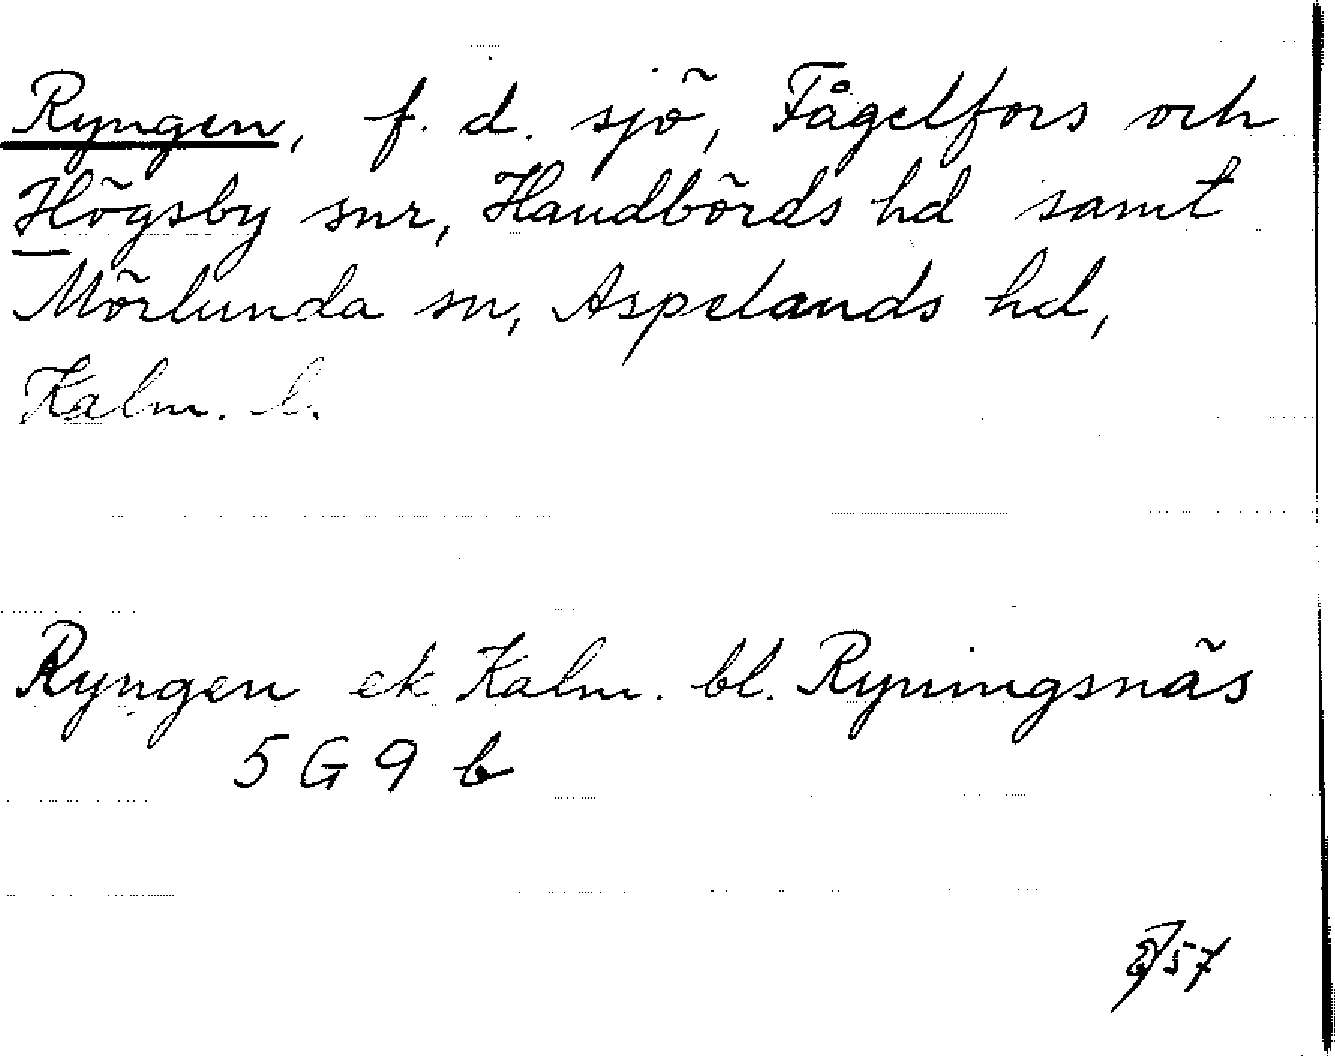 Ryngen, f. d. sjö, Fågelfors och
Högsby snr, Handbörds hd samt
Mörlunda sn, Aspelands hd,
Kalm. l.
Ryngen ek Kalm. bl. Ryningsnäs
5 G 9 b
57